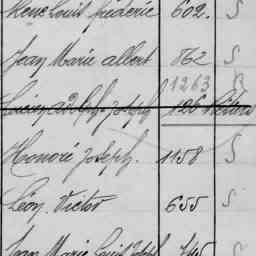 René Louis frédéric 602. S
Jean Marie albert 862 S
1263 B
Lucien adolph. Joseph 126
Honoré Joseph. 1158 S
Léon Victor 655 S
Jean Marie Louis Joseph 745 S